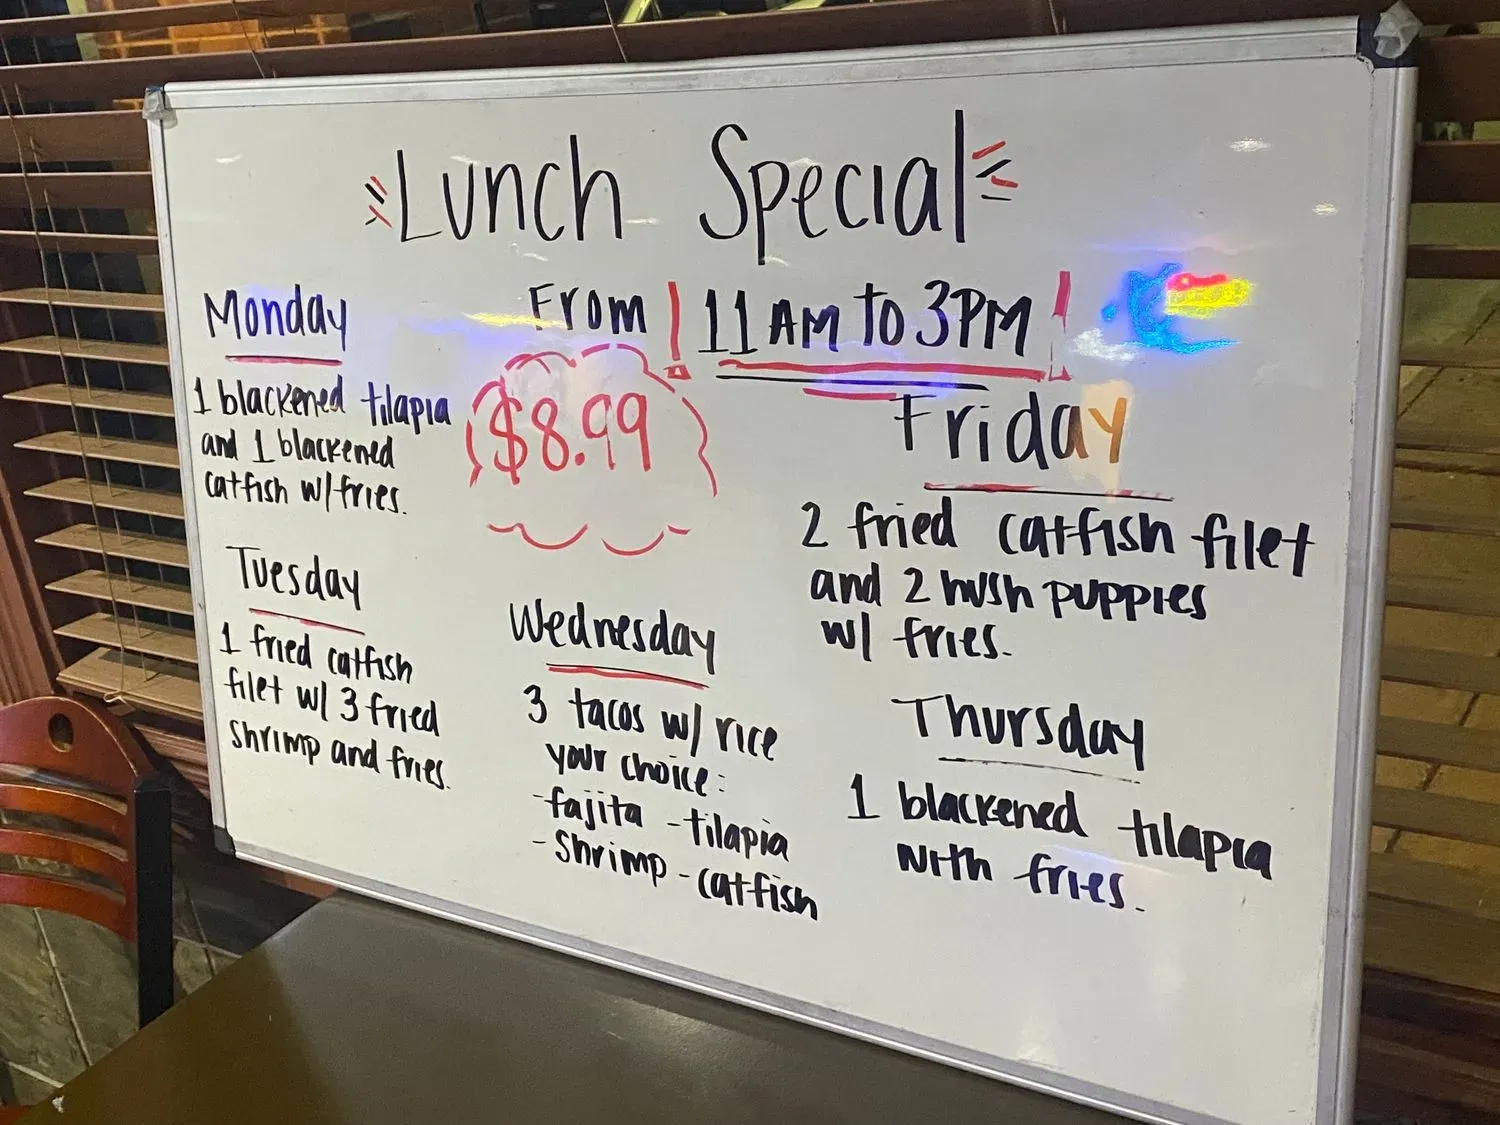 Lunch Special
From ! 11 AM to 3PM !
$8.99
Monday
1 blackened tilapia
and 1 blackened
catfish w/fries.
Tuesday
1 fried catfish
filet w/ 3 fried
shrimp and fries.
Wednesday
3 tacos w/ rice
your choice:
- fajita - tilapia
- shrimp - catfish
Friday
2 fried catfish filet
and 2 hush puppies
w/ fries.
Thursday
1 blackened tilapia
with fries.